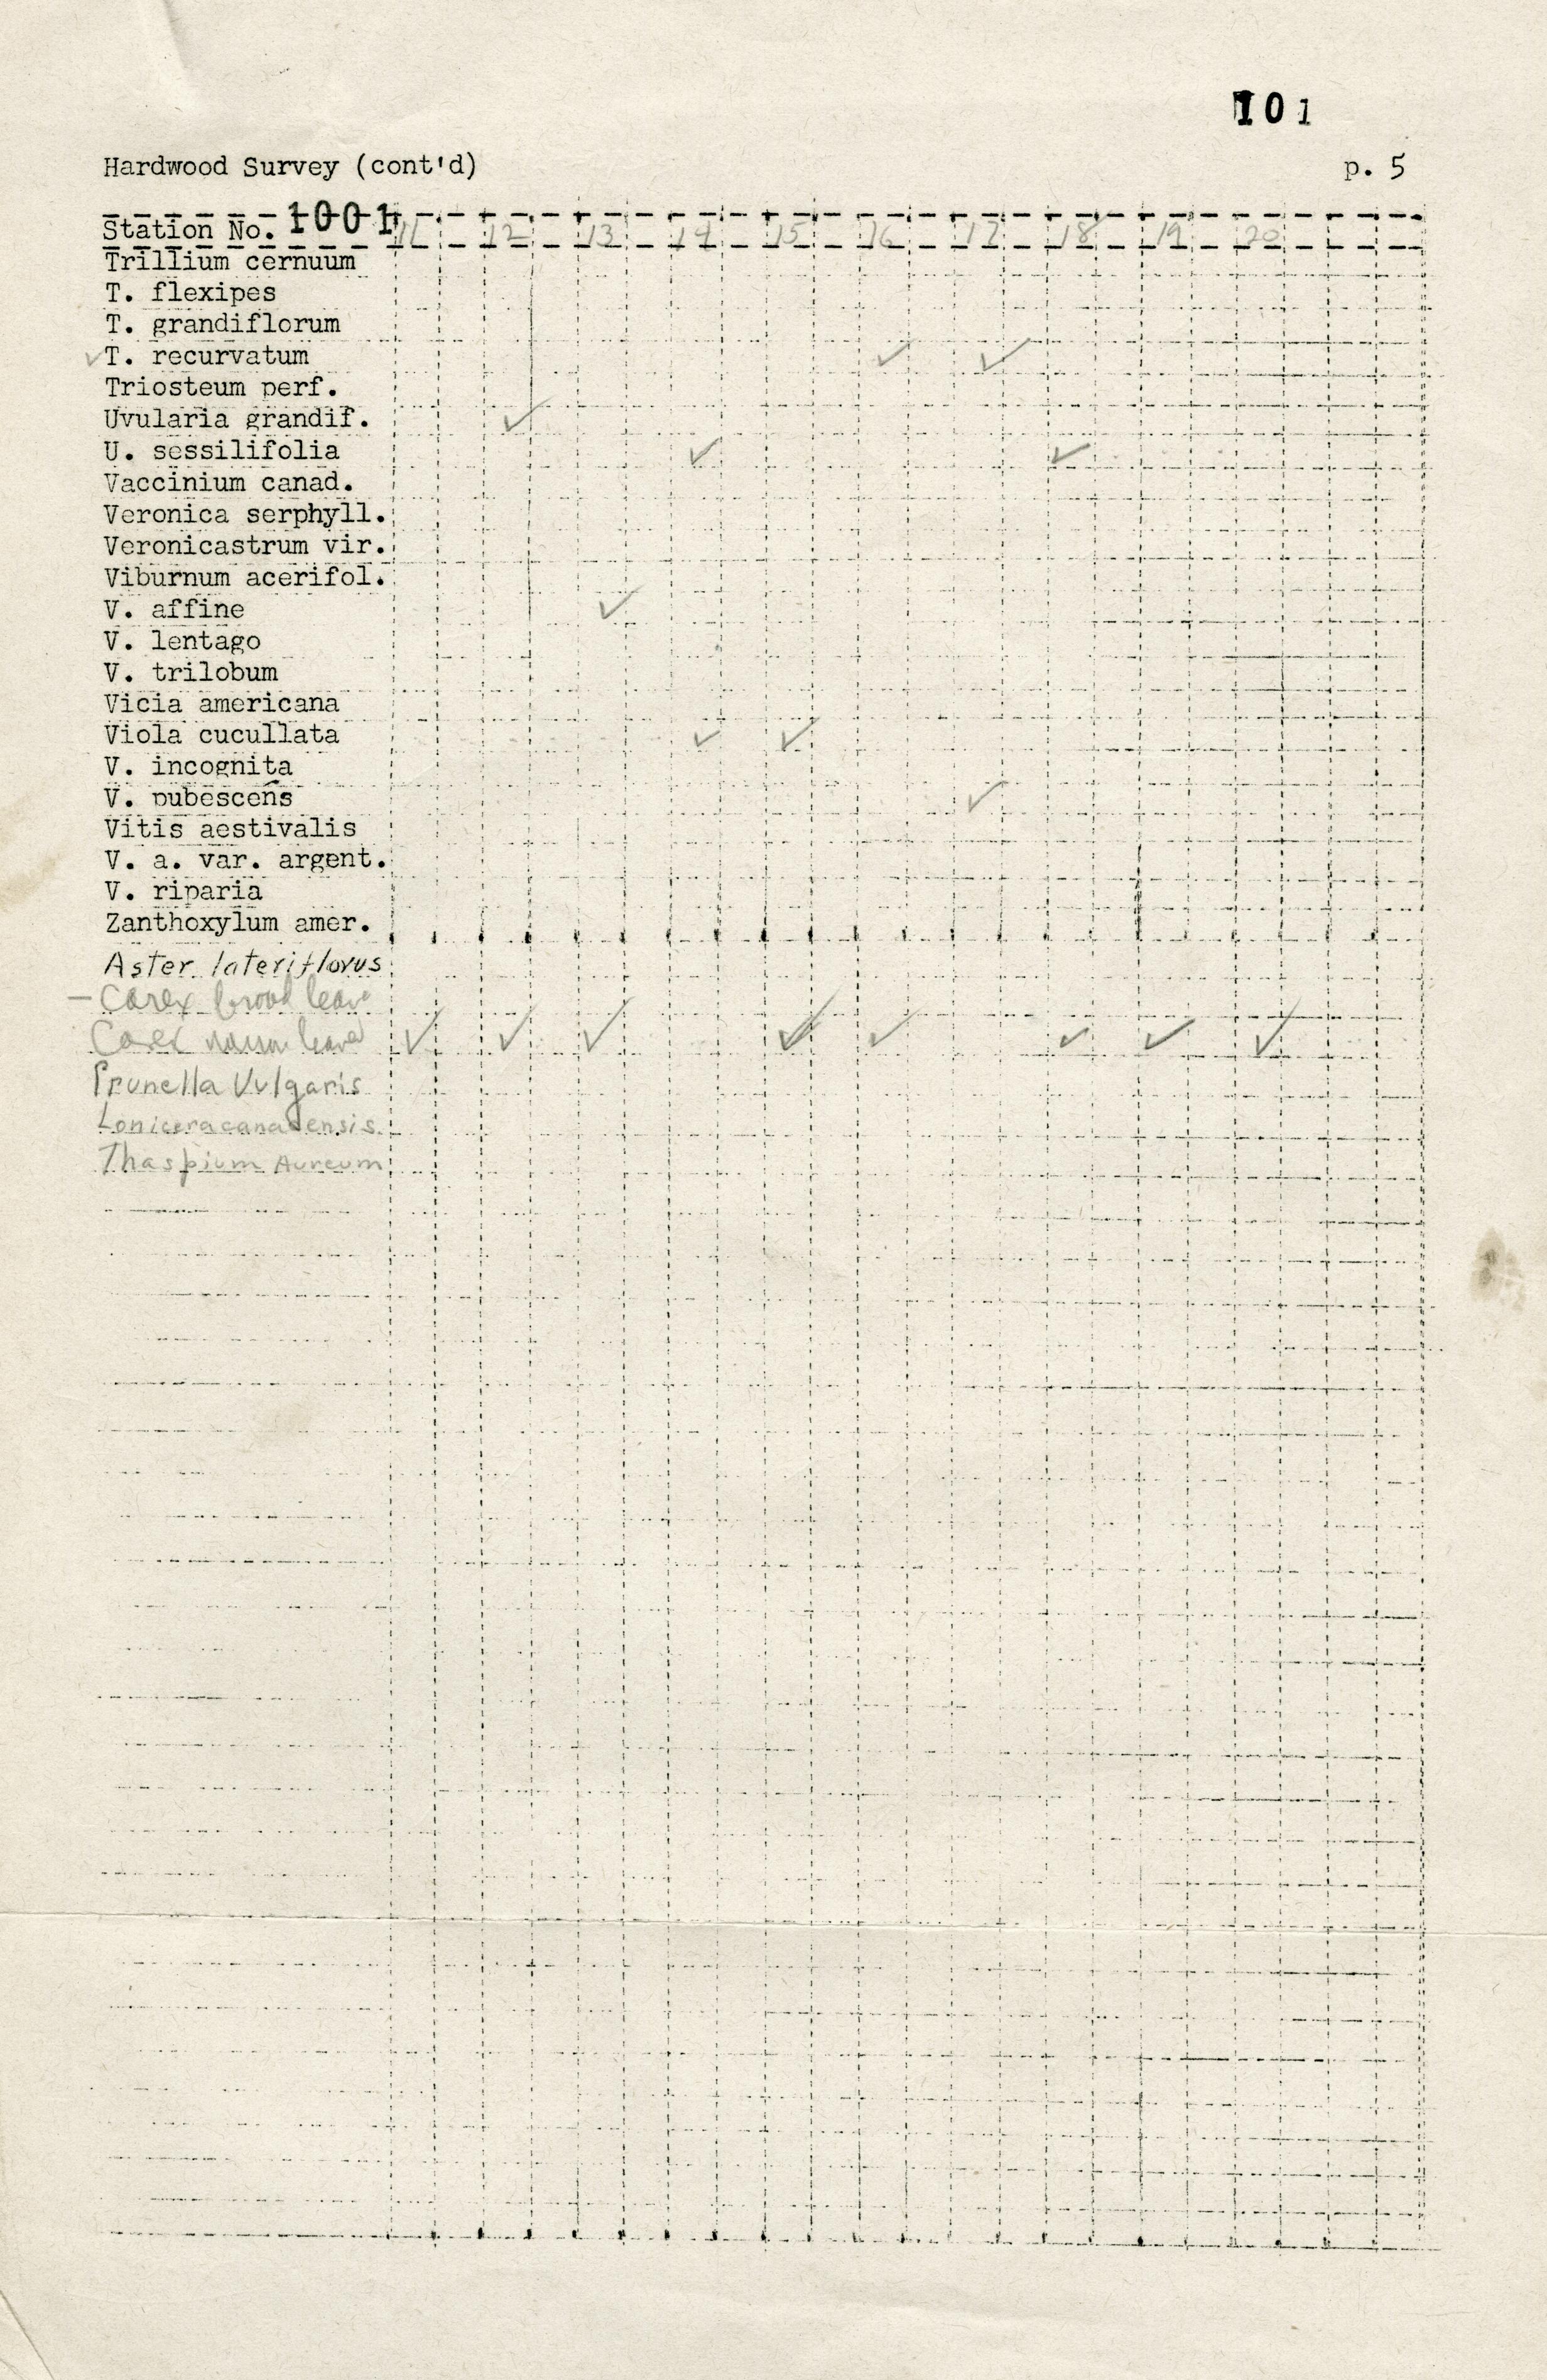 101
Hardwood Survey (cont'd) p. 5
Station No. 1001 11 12 13 14 15 16 17 18 19 20
Trillium cernuum
T. flexipes
T. grandiflorum
✓ T. recurvatum ✓ ✓
Triosteum perf.
Uvularia grandif. ✓
U. sessilifolia ✓ ✓
Vaccinium canad.
Veronica serphyll.
Veronicastrum vir.
Viburnum acerifol.
V. affine ✓
V. lentago
V. trilobum
Vicia americana
Viola cucullata ✓ ✓
V. incognita
V. pubescens ✓
Vitis aestivalis
V. a. var. argent.
V. riparia
Zanthoxylum amer.
Aster lateriflorus
– Carex broad leave
Carex narrow leave ✓ ✓ ✓ ✓ ✓ ✓ ✓ ✓
Prunella Vulgaris
Lonicera canadensis
Thaspium Aureum